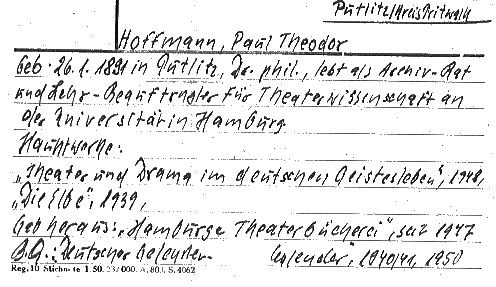 Putlitz/Kreis Pritwalk
Hoffmann, Paul Theodor
Geb. 26.1.1891 in Putlitz, Dr. phil., lebt als Archiv-Rat
und Lehr-Beauftragter für Theaterwissenschaft an
der Universität in Hamburg
Hauptwerke:
„Theater und Drama im deutschen Geistesleben", 1948,
„Die Elbe", 1939,
Geb heraus: „Hamburger Theaterbücherei", seit 1947
B.Q.: Deutscher Gelehrten-Kalender, 1940/41, 1950
Reg. 10 Stichnote 1. 50. 237000. A. 80. I. S. 4062